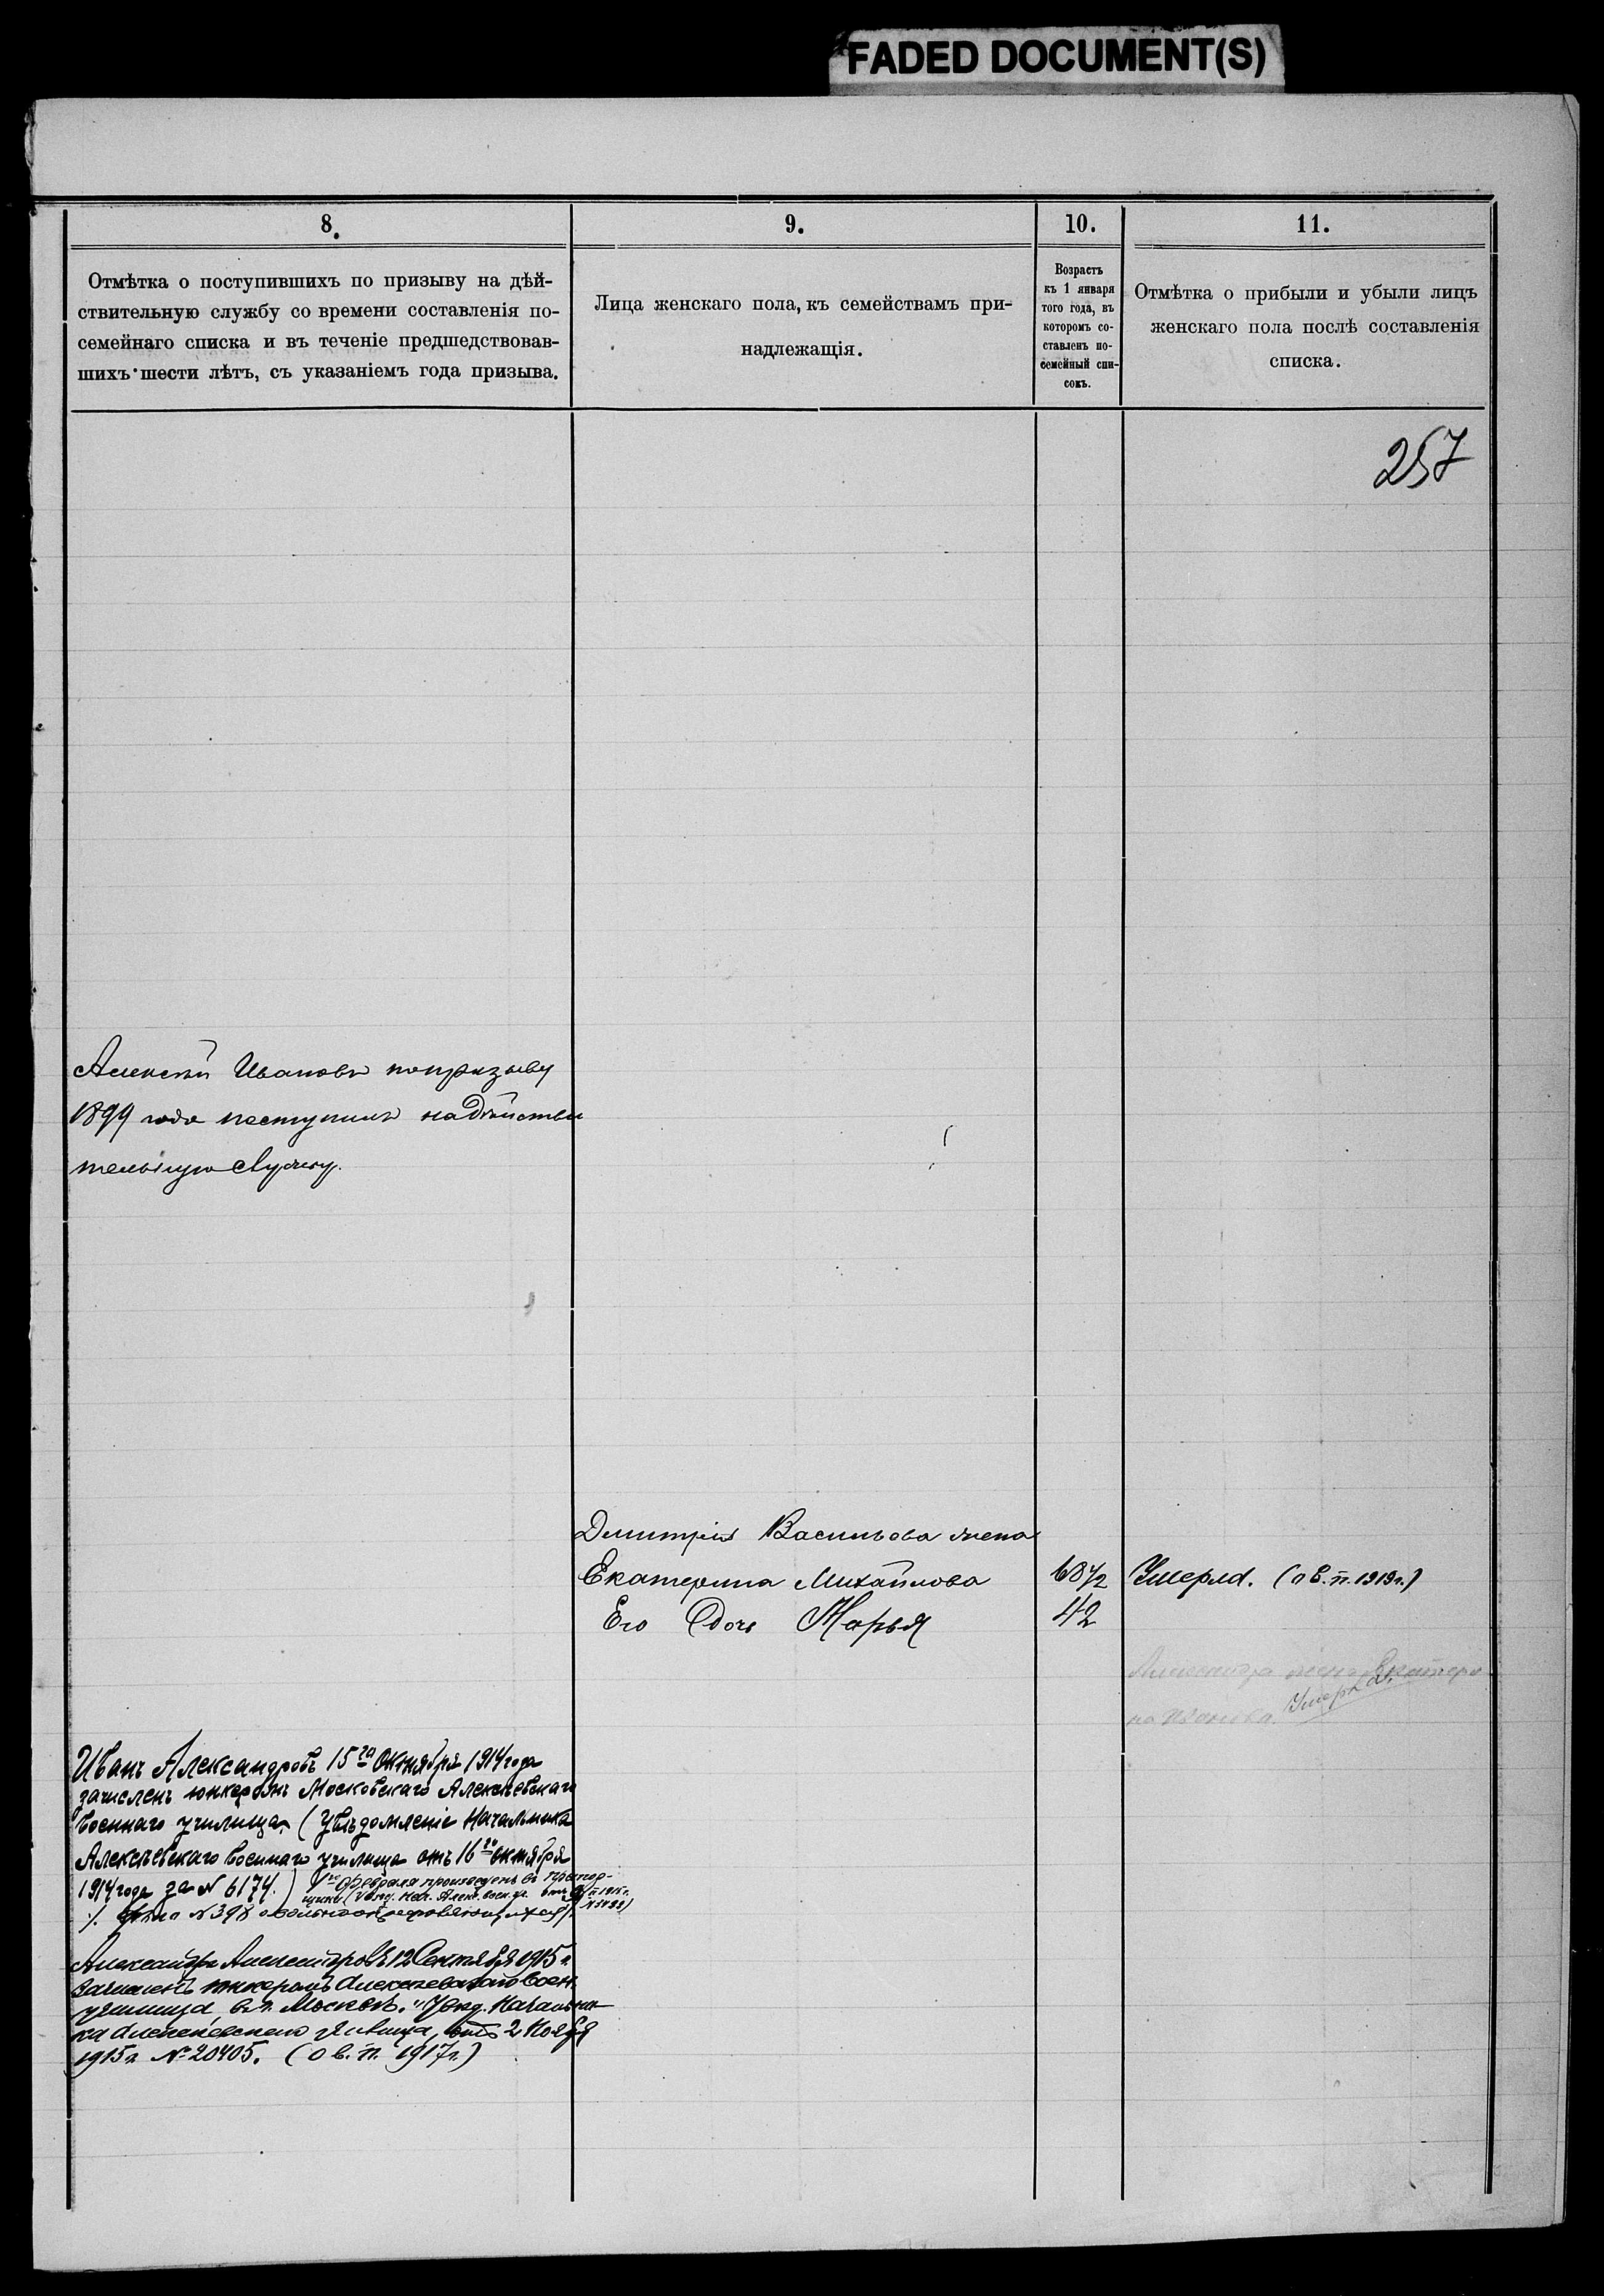 FADED DOCUMENT(S)
8.
9.
10.
11.
Отмѣтка о поступившихъ по призыву на дѣй-
ствительную службу со времени составленія по-
семейнаго списка и въ теченіе предшедствовав-
шихъ шести лѣтъ, съ указаніемъ года призыва.
Лица женскаго пола, къ семействамъ при-
надлежащія.
Возрастъ
къ 1 января
того года, въ
которомъ со-
ставленъ по-
семейный спи-
сокъ.
Отмѣтка о прибыли и убыли лицъ
женскаго пола послѣ составленія
списка.
257
Алексѣй Ивановъ по призыву
1899 года поступилъ на дѣйстви
тельную службу.
Дмитрія Васильева жена
Екатерина Михайлова
68 1/2
Умерла. (о в. п. 1919 г.)
Его Дочь Марья
42
Александра жена Екатери
на Иванова. Умерла.
Иванъ Александровъ 15го Октября 1914 года
зачисленъ юнкеромъ Московскаго Алексѣевскаго
Военнаго училища. (Увѣдомленіе Начальника
Алексѣевскаго Военнаго училища отъ 16го октября
1914 года за N 6174.)
1го Февраля произведенъ въ Прапор-
щики (Увѣд. Нач. Алекс. воен. уч. отъ
Дѣло N 398
Александръ Александровъ 12 Сентября 1915 г.
Зачисленъ юнкеромъ Алексѣевскаго Воен.
училища въ г. Москвѣ. Увѣд. Начальни
ка Алексѣевскаго училища, отъ 2 Ноября
1915 г. № 20405. (о в. п. 1917 г.)